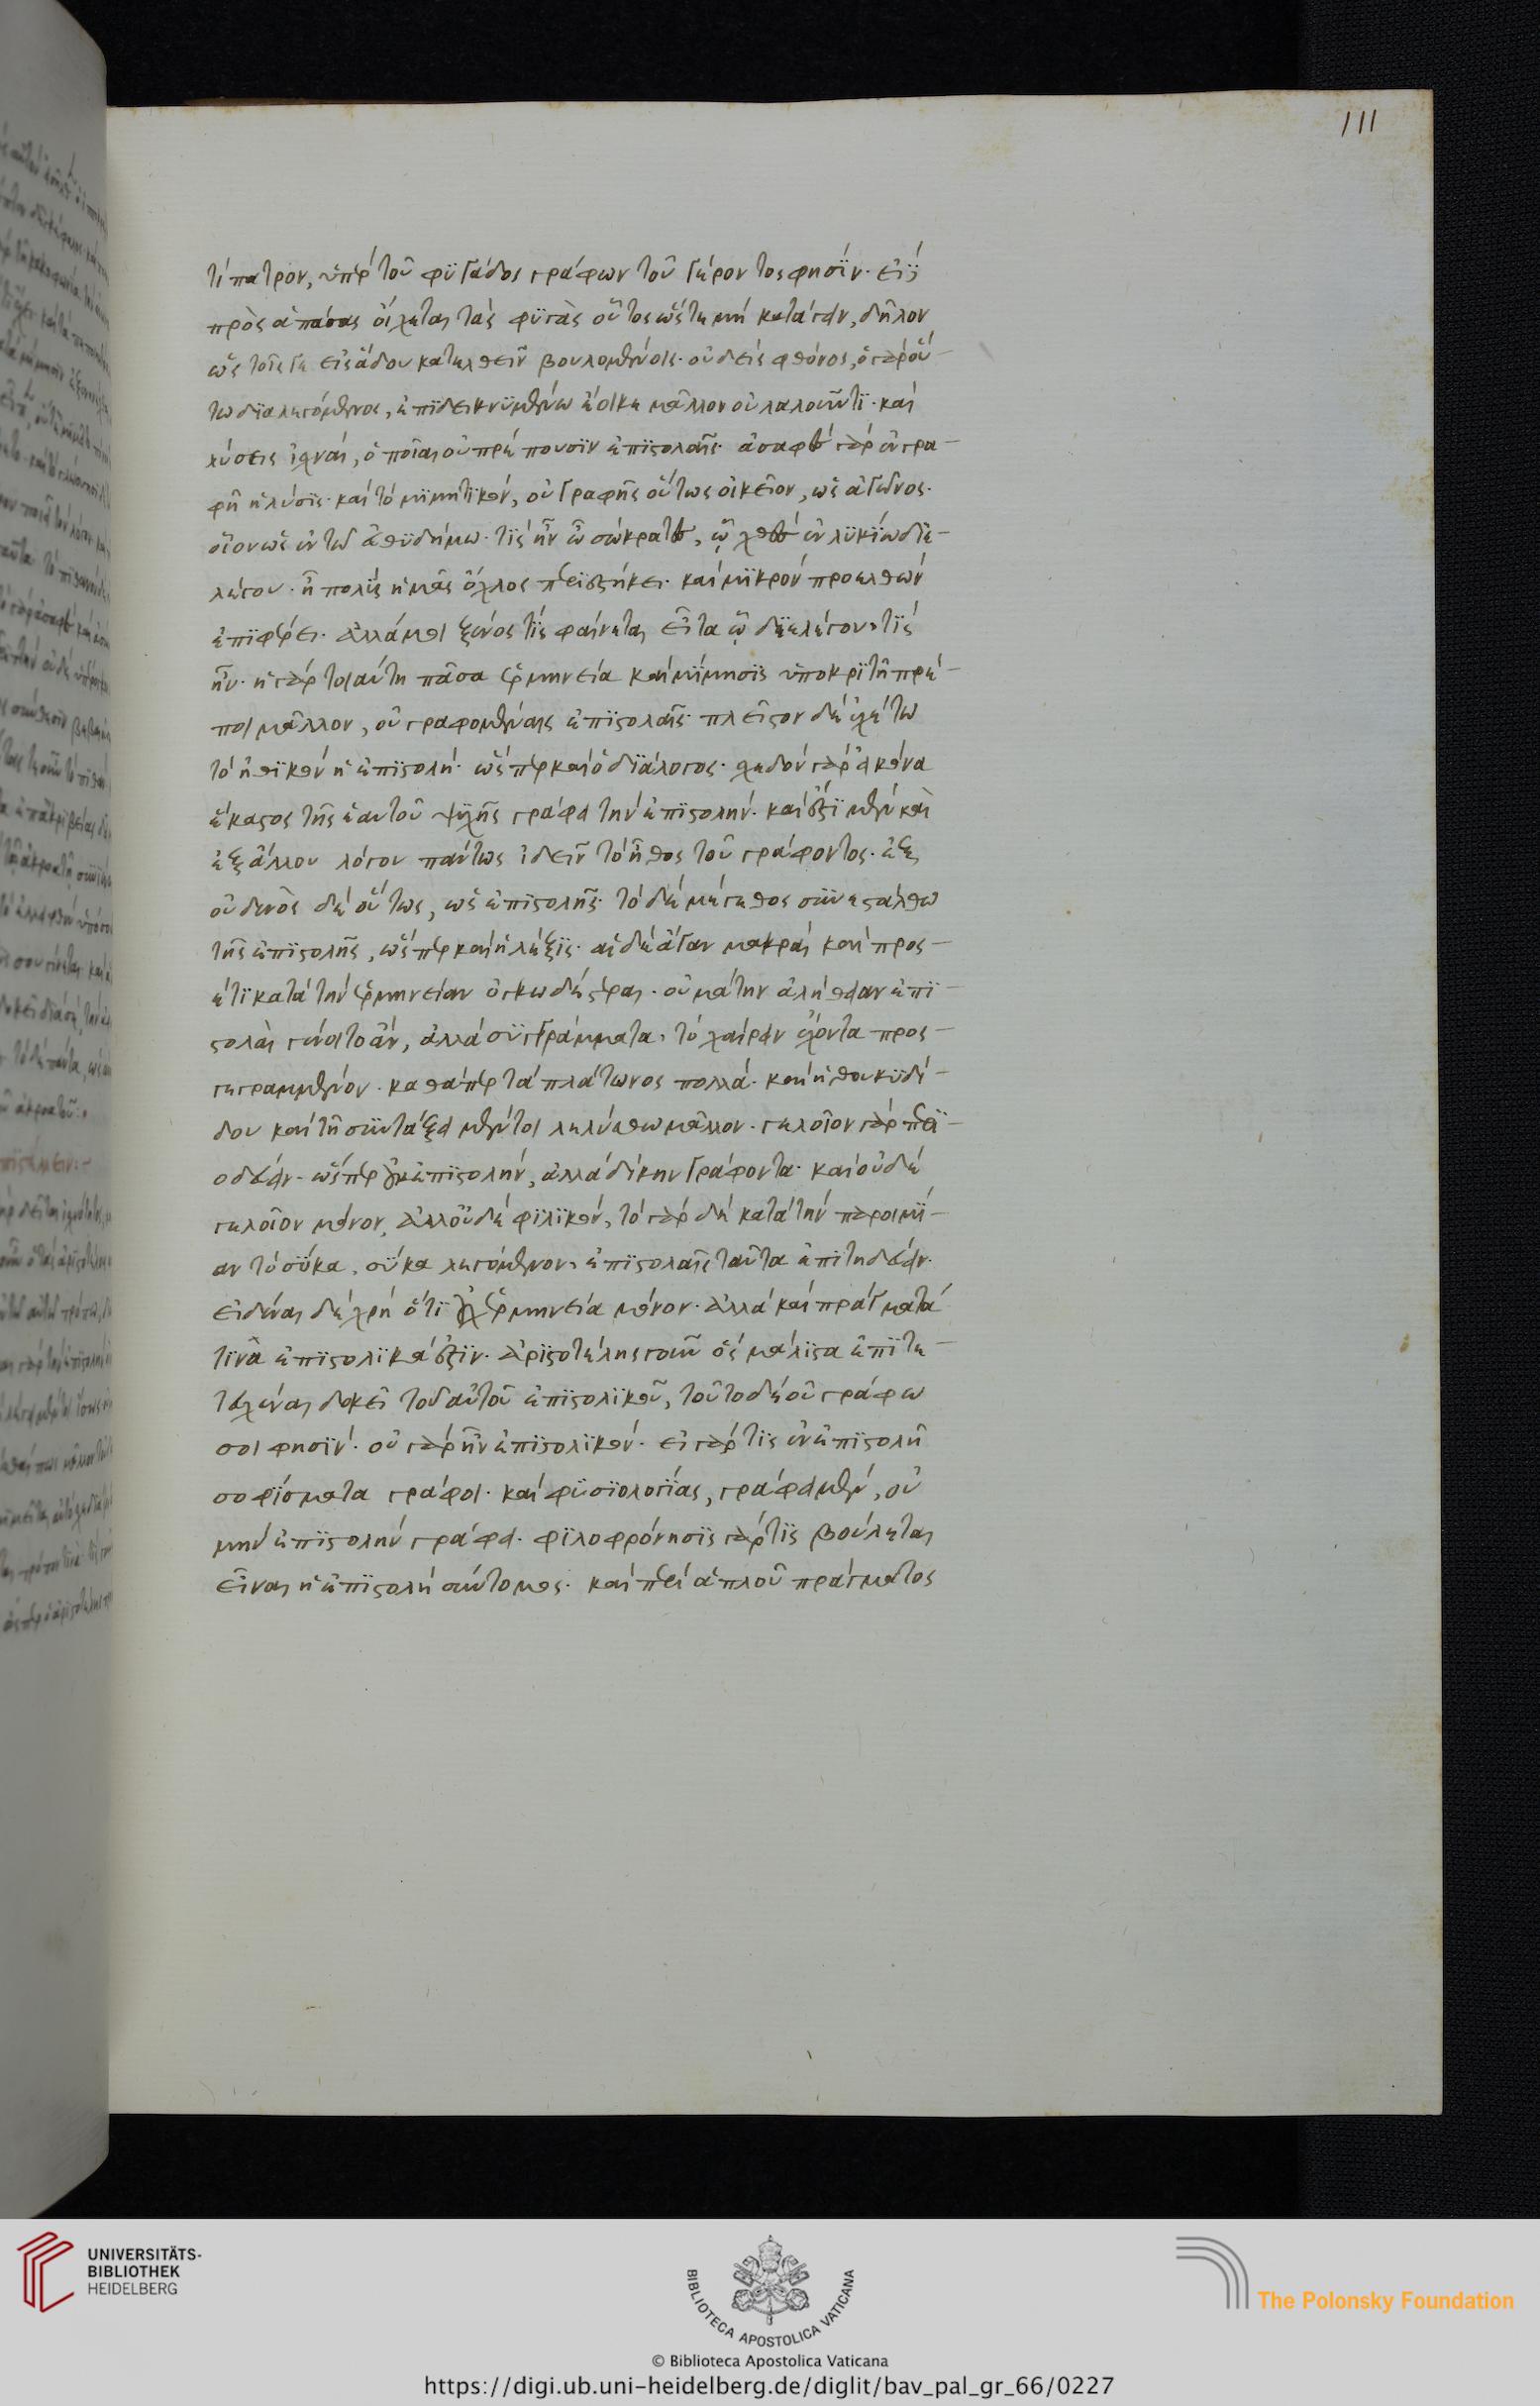 111
τίπατρον, ὑπὲρ τοῦ φυγάδος γράφων τοῦ γέροντος φησίν· εἰ
πρὸς ἁπάσας οἴχεται τὰς φυγὰς οὗτος ὥστε μὴ κατάγειν, δῆλον
ὡς τοῖς γε εἰς ἅδου κατελθεῖν βουλομένοις οὐδεὶς φθόνος, ὁ γὰρ οὕ-
τω διαλεγόμενος, ἐπιδεικνυμένω ἔοικε μᾶλλον οὐ λαλοῦντι· καὶ
λύσεις ἰχναί, ὁποῖαι οὐ πρέπουσιν ἐπιστολαῖς· ἀσαφὲς γὰρ ἐν γρα-
φῇ ἡ λύσις· καὶ τὸ μιμητικὸν, οὐ γραφῆς οὕτως οἰκεῖον, ὡς ἀγῶνος·
οἷον ὡς ἐν τῷ εὐθυδήμω· τίς ἦν ὦ σώκρατες, ᾧ χθὲς ἐν λυκίω διε-
λέγου· ἦ πολὺς ἡμᾶς ὄχλος περιεστήκει· καὶ μικρὸν προελθὼν
ἐπιφέρει· ἀλλά μοι ξένος τις φαίνεται εἶτα ᾧ διελέγου· τίς
ἦν· ἡ γὰρ τοιαύτη πᾶσα ἑρμηνεία καὶ μίμησις ὑποκριτῇ πρέ-
ποι μᾶλλον, οὐ γραφομέναις ἐπιστολαῖς· πλεῖστον δὲ ἐχέτω
τὸ ἠθικὸν ἡ ἐπιστολή· ὥσπερ καὶ ὁ διάλογος· σχεδὸν γὰρ εἰκόνα
ἕκαστος τῆς ἑαυτοῦ ψυχῆς γράφει τὴν ἐπιστολήν· καὶ ἔστι μὲν καὶ
ἐξ ἄλλου λόγου παντὸς ἰδεῖν τὸ ἦθος τοῦ γράφοντος· ἐξ
οὐδενὸς δὲ οὕτως, ὡς ἐπιστολῆς· τὸ δὲ μέγεθος συνεστάλθω
τῆς ἐπιστολῆς, ὥσπερ καὶ ἡ λέξις· αἱ δὲ ἄγαν μακραὶ καὶ προς-
έτι κατὰ τὴν ἑρμηνείαν ὀγκωδέστεραι· οὐ μὰ τὴν ἀλήθειαν ἐπι-
στολαὶ γένοιντο ἄν, ἀλλὰ συγγράμματα, τὸ χαίρειν ἔχοντα προς-
γεγραμμένον· καθάπερ τὰ πλάτωνος πολλά· καὶ ἡ θουκυδί-
δου καὶ τῇ συντάξει μέντοι λελύσθω μᾶλλον· γελοῖον γὰρ περι-
οδεύειν· ὥσπερ οὐκ ἐπιστολήν, ἀλλὰ δίκην γράφοντα· καὶ οὐδὲ
γελοῖον μόνον, ἀλλ' οὐδὲ φιλικόν, τὸ γὰρ δὴ κατὰ τὴν παροιμί-
αν τὰ σῦκα, σῦκα λεγόμενον, ἐπιστολαῖς ταῦτα ἐπιτηδεύειν·
εἰδέναι δὲ χρὴ ὅτι οὐχ ἑρμηνεία μόνον· ἀλλὰ καὶ πράγματά
τινα ἐπιστολικά ἐστιν· ἀριστοτέλης γοῦν ὃς μάλιστα ἐπιτε-
τευχέναι δοκεῖ τοῦ αὐτοῦ ἐπιστολικοῦ, τοῦτο δὲ οὐ γράφω
σοι φησίν· οὐ γὰρ ἦν ἐπιστολικόν· εἰ γάρ τις ἐν ἐπιστολῇ
σοφίσματα γράφοι· καὶ φυσιολογίας, γράφει μέν, οὐ
μὴν ἐπιστολὴν γράφει· φιλοφρόνησις γάρ τις βούλεται
εἶναι ἡ ἐπιστολὴ σύντομος· καὶ περὶ ἁπλοῦ πράγματος
UNIVERSITÄTS-
BIBLIOTHEK
HEIDELBERG
BIBLIOTECA APOSTOLICA VATICANA
The Polonsky Foundation
© Biblioteca Apostolica Vaticana
https://digi.ub.uni-heidelberg.de/diglit/bav_pal_gr_66/0227